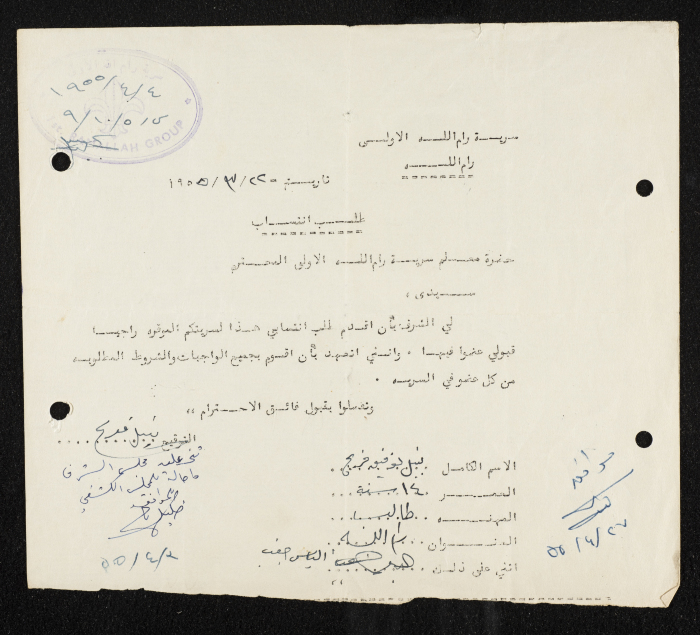 ١٩٥٥/٤/٤
٩/١٠/٥٥
RAMALLAH GROUP
سرية رام الله الاولى
رام الله
تاريخ ٢٢/٣/١٩٥٥
طلب انتساب
حضرة معلم سرية رام الله الاولى المحترم
سيدي ،
لي الشرف بأن اقدم طلب انتسابي هذا لسريتكم الموقره راجيا
قبولي عضوا فيها ٠ وانني اتعهد بأن اقوم بجميع الواجبات والشروط المطلوبه
من كل عضو في السريه ٠
وتفضلوا بقبول فائق الاحترام ،،
التوقيع نبيل فريج
الاسم الكامل نبيل فريج
العمر ١٤ سنة
المهنه طالب
العنوان رام الله
اثني على ذلك الياس
مجلس الشرف
الكشفي
٥٥/٤/٢
موافق